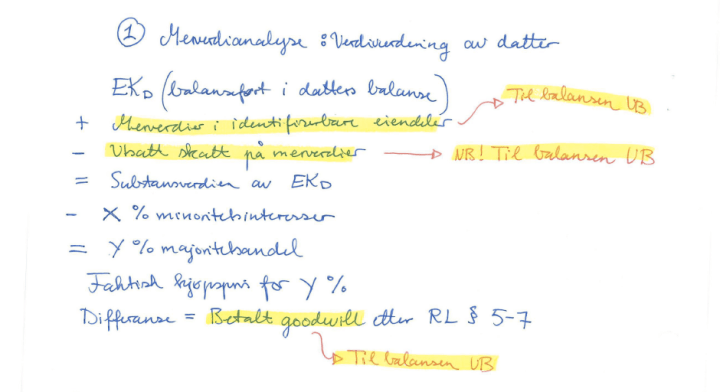 ① Merverdianalyse : Verdivurdering av datter
EKD (balanseført i datters balanse)
+ Merverdier i identifiserbare eiendeler → Til balansen UB
- Utsatt skatt på merverdier → NB! Til balansen UB
= Substansverdien av EKD
- X % minoritetsinteresser
= Y % majoritetsandel
Faktisk kjøpspris for Y %
Differanse = Betalt goodwill etter RL § 5-7
→ Til balansen UB